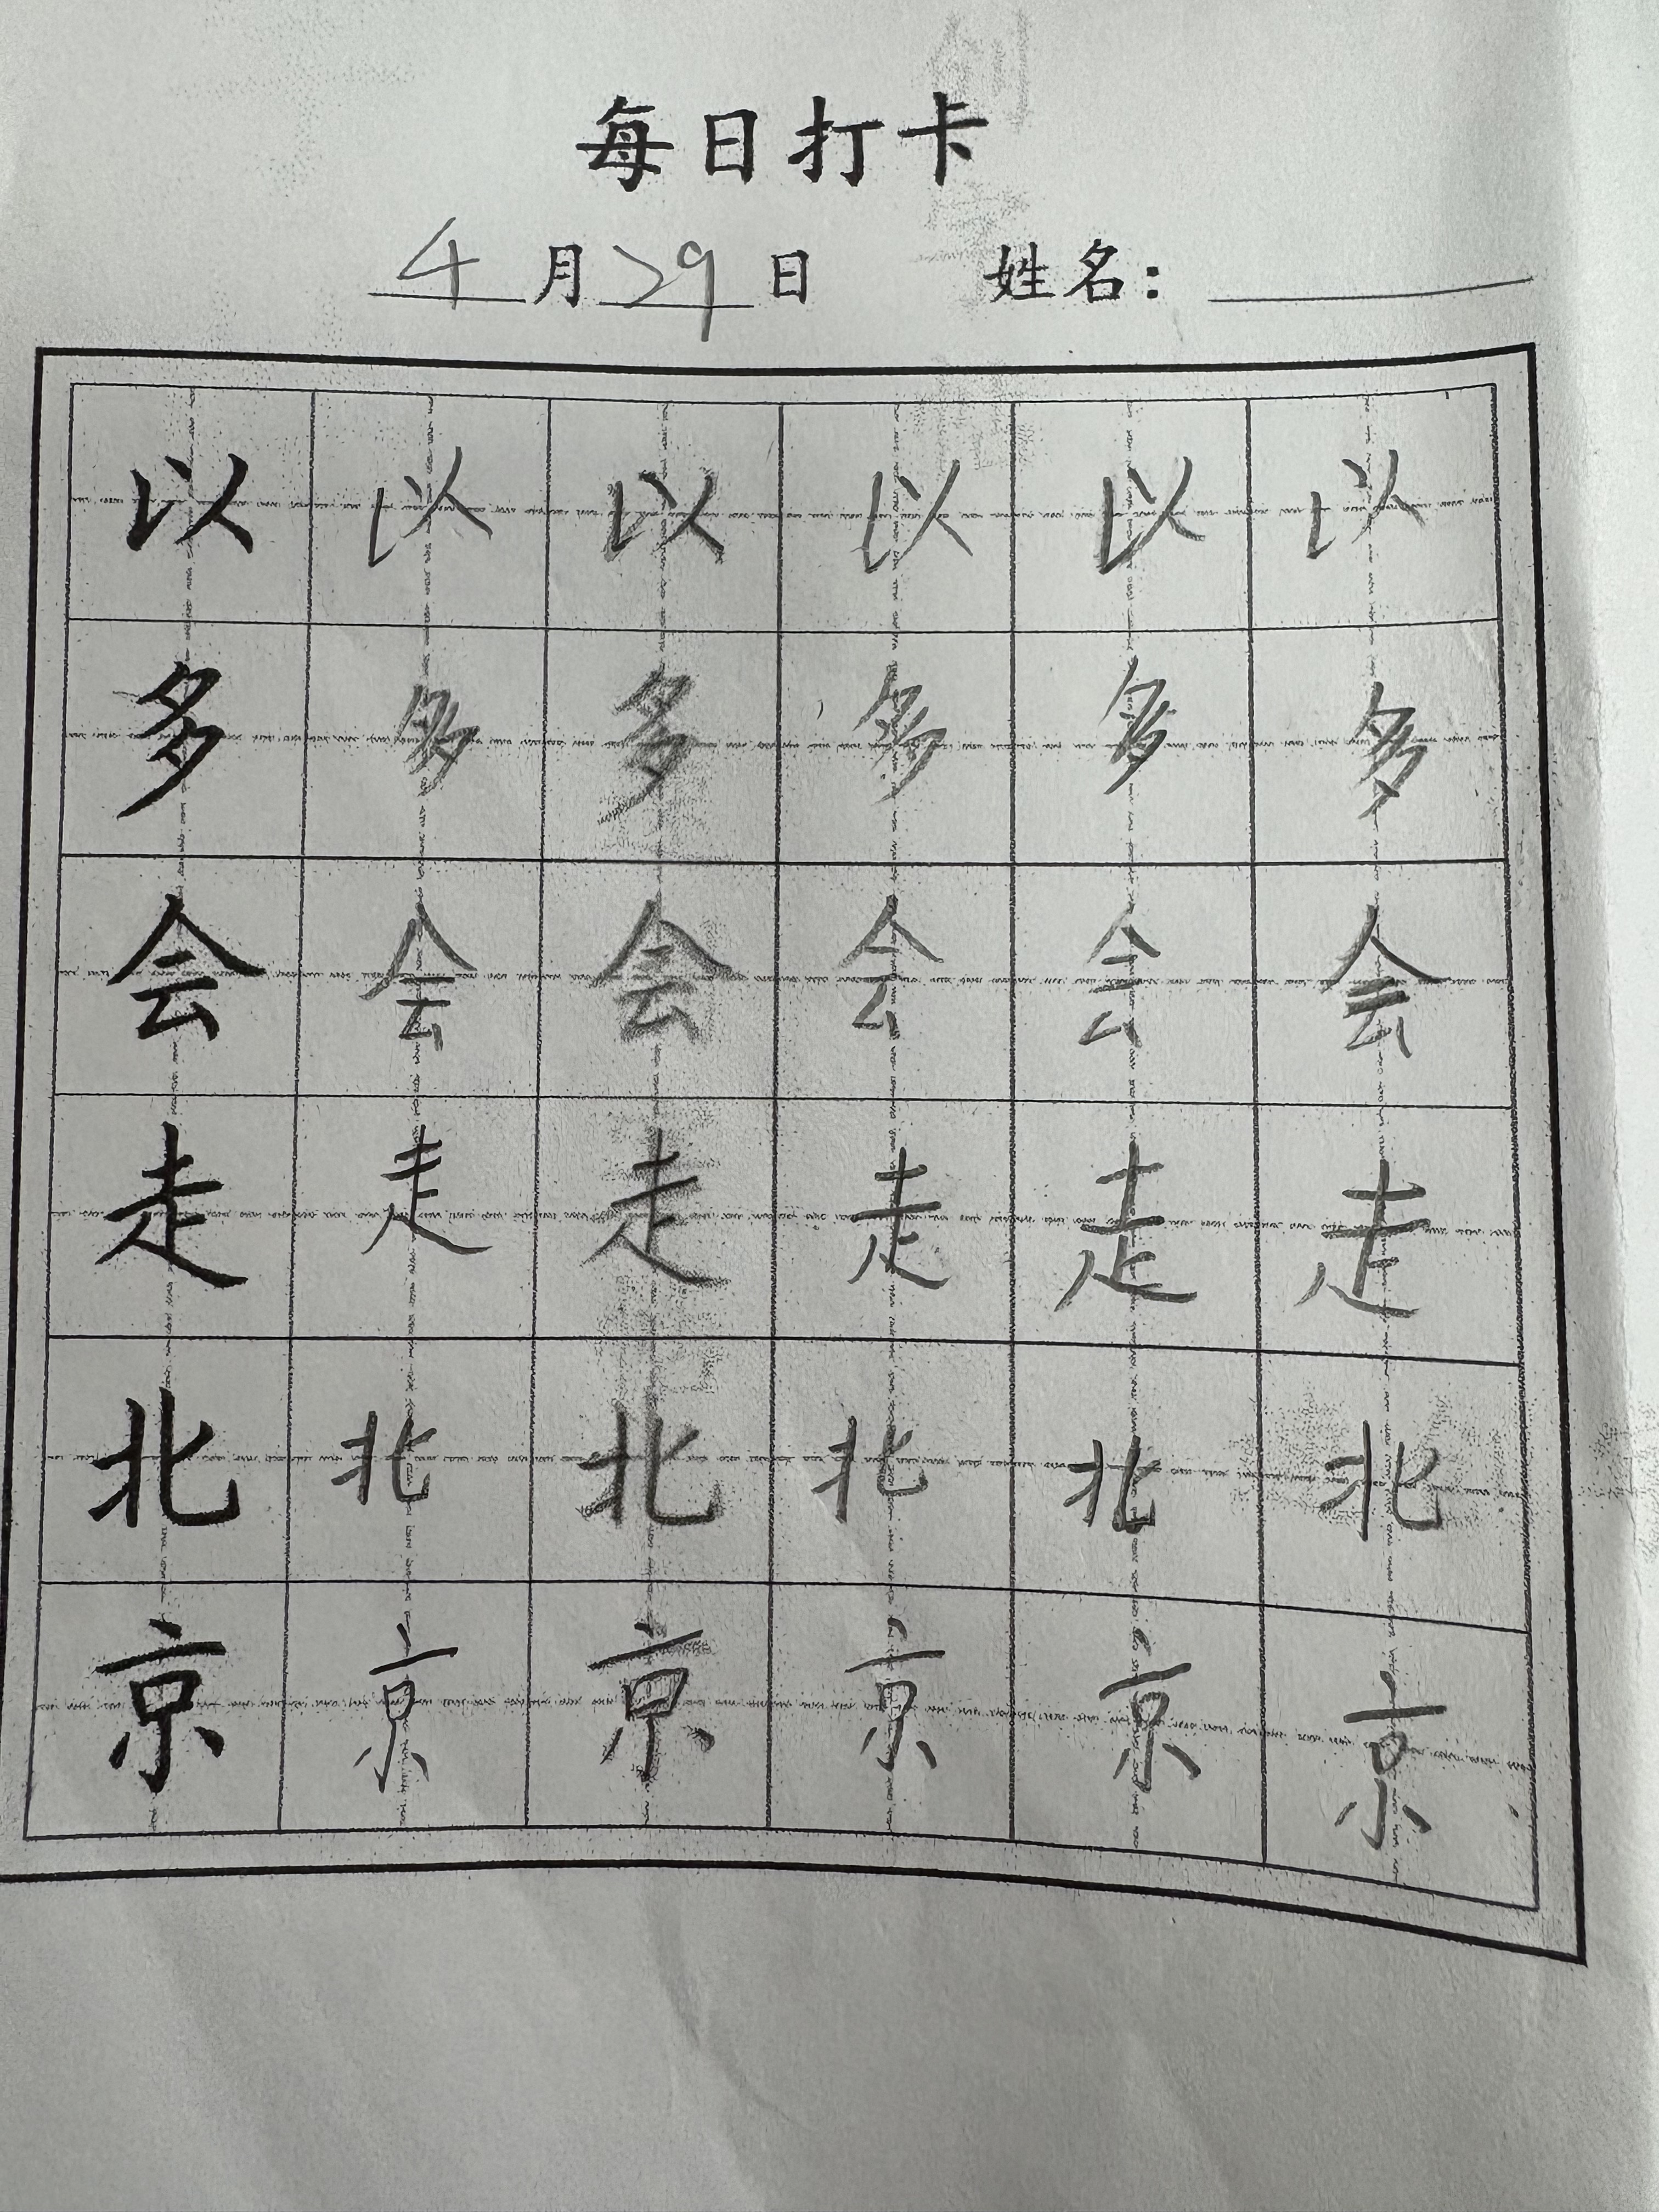 每日打卡
4月29日 姓名：
以以以以以以
多多多多多多
会会会会会会
走走走走走走
北北北北北北
京京京京京京